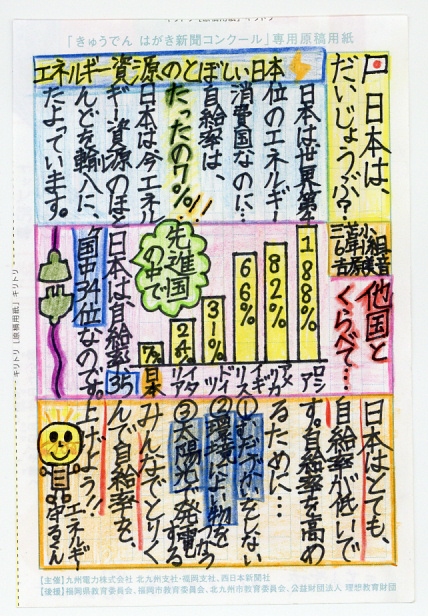 「きゅうでん はがき新聞コンクール」専用原稿用紙
日本は、
だいじょうぶ？
エネルギー資源のとぼしい日本
日本は世界第4
位のエネルギー
消費国なのに…
自給率は、
たったの7%…!!
日本は今エネル
ギー資源のほと
んどを輸入に、
たよっています。
他国と
くらべて…
188%
ロシア
82%
アメリカ
66%
イギリス
31%
ドイツ
24%
イタリア
7%
日本
先進国
の中で
日本は、自給率35
ヶ国中34位なのです。
日本はとても、
自給率が低いで
す。自給率を高め
るために…
①むだづかいをしない
②環境によい物をつかう
③太陽光で発電する
みんなでとりく
んで自給率を、
上げよう!!
キリトリ 「原稿用紙」 キリトリ
【主催】九州電力株式会社 北九州支社・福岡支社、西日本新聞社
【後援】福岡県教育委員会、福岡市教育委員会、北九州市教育委員会、公益財団法人 理想教育財団